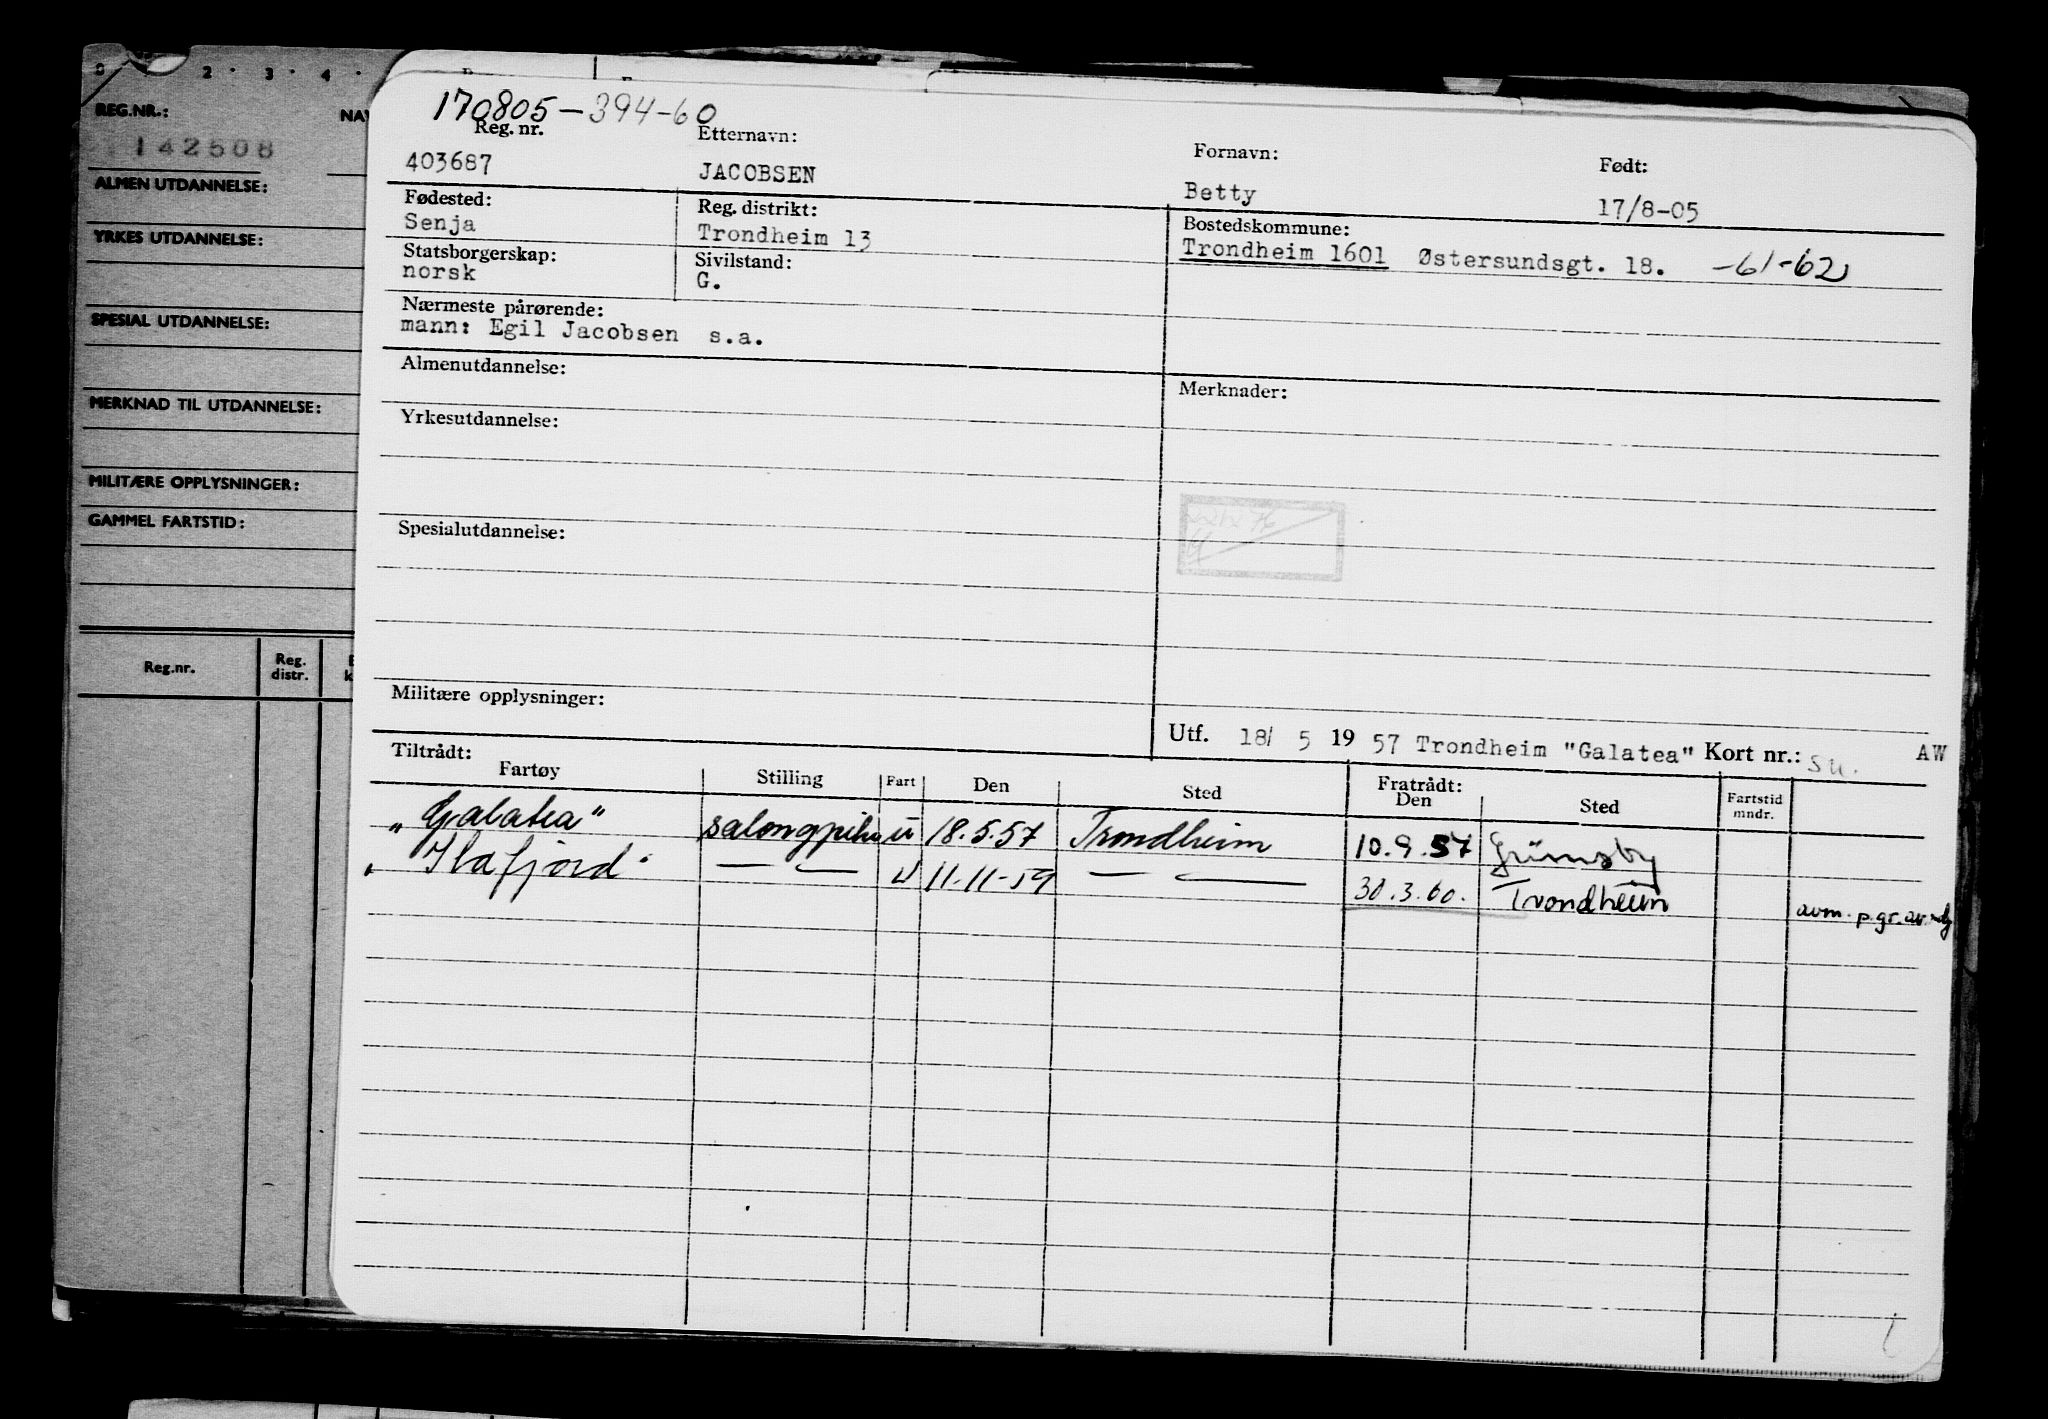 0 2 · 3 · 4 ·
REG.NR.: NAV
142508
ALMEN UTDANNELSE:
YRKES UTDANNELSE:
SPESIAL UTDANNELSE:
MERKNAD TIL UTDANNELSE:
MILITÆRE OPPLYSNINGER:
GAMMEL FARTSTID:
Reg.nr. Reg. distr.
170805-394-60
Reg. nr. Etternavn: Fornavn: Født:
403687 JACOBSEN Betty 17/8-05
Fødested: Reg. distrikt: Bostedskommune:
Senja Trondheim 13 Trondheim 1601 Østersundsgt. 18. -61-62
Statsborgerskap: Sivilstand:
norsk G.
Nærmeste pårørende:
mann: Egil Jacobsen s.a.
Almenutdannelse: Merknader:
Yrkesutdannelse:
Spesialutdannelse:
Militære opplysninger:
Utf. 18/ 5 19 57 Trondheim "Galatea" Kort nr.: su. AW
Tiltrådt: Fratrådt:
Fartøy Stilling Fart Den Sted Den Sted Fartstid mndr.
„Galatea" salongpike u 18.5.57 Trondheim 10.9.57 Grimsby
„Ilafjord" — — u 11-11-59 — — 30.3.60. Trondheim avm. p.gr.av